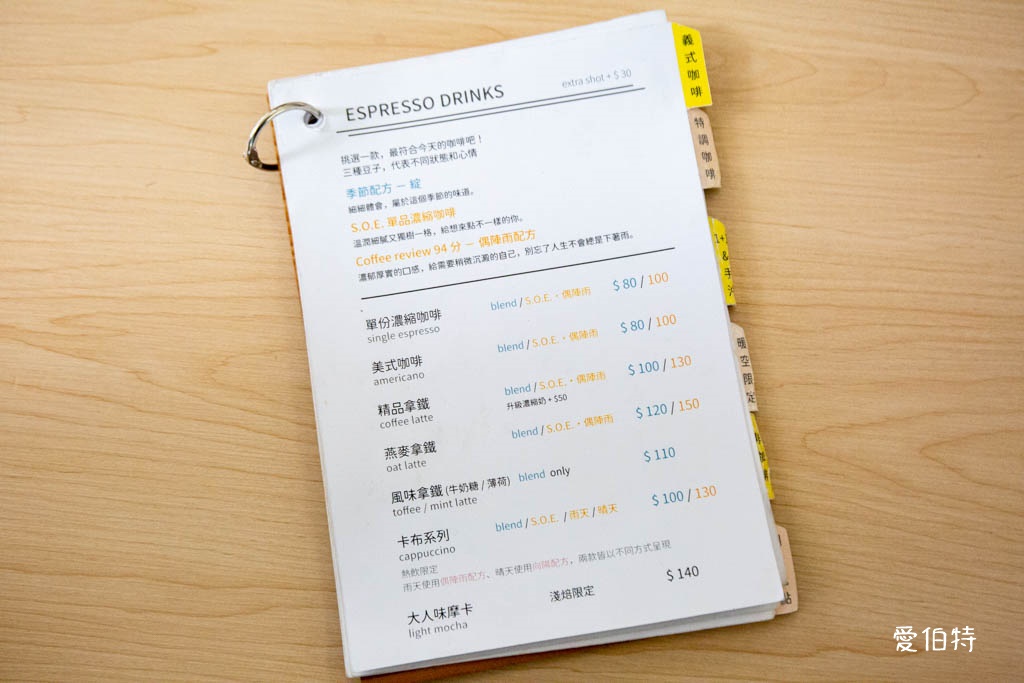 ESPRESSO DRINKS
extra shot + $ 30
挑選一款，最符合今天的咖啡吧！
三種豆子，代表不同狀態和心情
季節配方 － 綻
細細體會，屬於這個季節的味道。
S.O.E. 單品濃縮咖啡
溫潤細膩又獨樹一格，給想來點不一樣的你。
Coffee review 94 分 － 偶陣雨配方
濃郁厚實的口感，給需要稍微沉澱的自己，別忘了人生不會總是下著雨。
單份濃縮咖啡 blend / S.O.E.・偶陣雨 $ 80 / 100
single espresso
美式咖啡 blend / S.O.E.・偶陣雨 $ 80 / 100
americano
精品拿鐵 blend / S.O.E.・偶陣雨 $ 100 / 130
coffee latte 升級濃縮奶 + $50
燕麥拿鐵 blend / S.O.E.・偶陣雨 $ 120 / 150
oat latte
風味拿鐵 (牛奶糖 / 薄荷) blend only $ 110
toffee / mint latte
卡布系列 blend / S.O.E. / 雨天 / 晴天 $ 100 / 130
cappuccino
熱飲限定
雨天使用偶陣雨配方、晴天使用向陽配方，兩款皆以不同方式呈現
大人味摩卡 淺焙限定 $ 140
light mocha
義式咖啡
特調咖啡
1+1&手沖
暖空限定
愛伯特